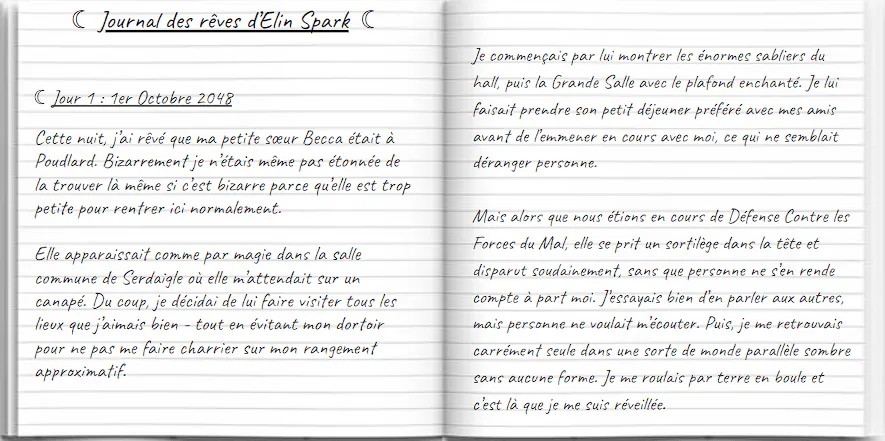 Journal des rêves d'Elin Spark
Jour 1 : 1er Octobre 2048
Cette nuit, j'ai rêvé que ma petite sœur Becca était à
Poudlard. Bizarrement je n'étais même pas étonnée de
la trouver là même si c'est bizarre parce qu'elle est trop
petite pour rentrer ici normalement.
Elle apparaissait comme par magie dans la salle
commune de Serdaigle où elle m'attendait sur un
canapé. Du coup, je décidai de lui faire visiter tous les
lieux que j'aimais bien - tout en évitant mon dortoir
pour ne pas me faire charrier sur mon rangement
approximatif.
Je commençais par lui montrer les énormes sabliers du
hall, puis la Grande Salle avec le plafond enchanté. Je lui
faisait prendre son petit déjeuner préféré avec mes amis
avant de l'emmener en cours avec moi, ce qui ne semblait
déranger personne.
Mais alors que nous étions en cours de Défense Contre les
Forces du Mal, elle se prit un sortilège dans la tête et
disparut soudainement, sans que personne ne s'en rende
compte à part moi. J'essayais bien d'en parler aux autres,
mais personne ne voulait m'écouter. Puis, je me retrouvais
carrément seule dans une sorte de monde parallèle sombre
sans aucune forme. Je me roulais par terre en boule et
c'est là que je me suis réveillée.